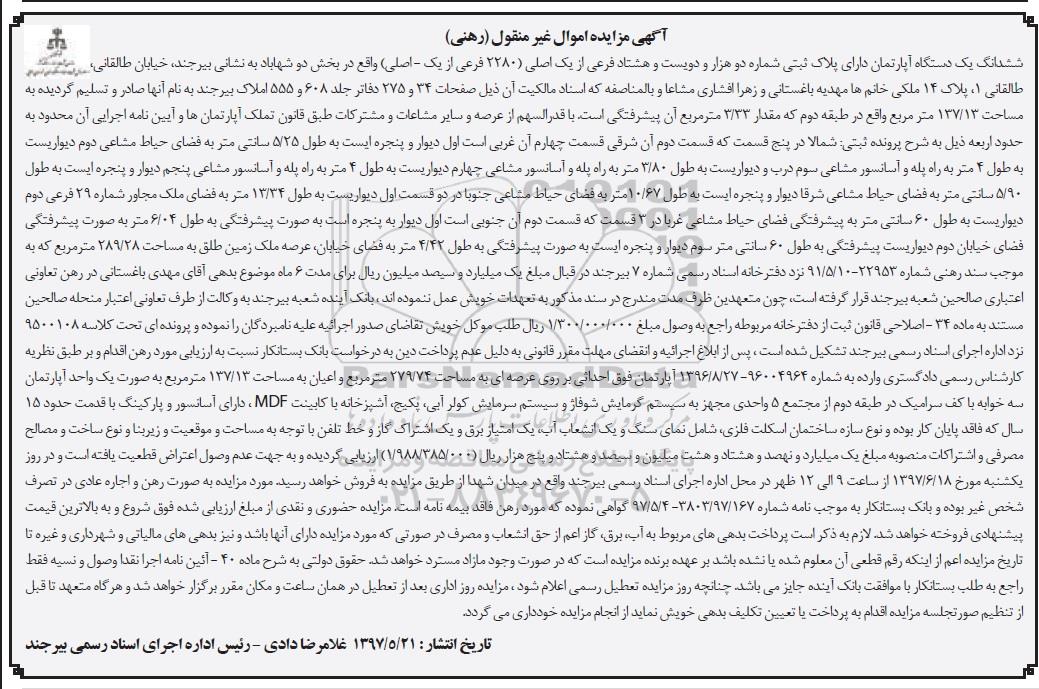 آگهی مزایده اموال غیر منقول (رهنی)
ششدانگ یک دستگاه آپارتمان دارای پلاک ثبتی شماره دو هزار و دویست و هشتاد فرعی از یک اصلی (۲۲۸۰ فرعی از یک - اصلی) واقع در بخش دو شهاباد به نشانی بیرجند، خیابان طالقانی،
طالقانی ۱، پلاک ۱۴ ملکی خانم ها مهدیه باغستانی و زهرا افشاری مشاعا و بالمناصفه که اسناد مالکیت آن ذیل صفحات ۳۴ و ۲۷۵ دفاتر جلد ۶۰۸ و ۵۵۵ املاک بیرجند به نام آنها صادر و تسلیم گردیده به
مساحت ۱۳۷/۱۳ متر مربع واقع در طبقه دوم که مقدار ۳/۳۳ مترمربع آن پیشرفتگی است. با قدرالسهم از عرصه و سایر مشاعات و مشترکات طبق قانون تملک آپارتمان ها و آیین نامه اجرایی آن محدود به
حدود اربعه ذیل به شرح پرونده ثبتی: شمالا در پنج قسمت که قسمت دوم آن شرقی قسمت چهارم آن غربی است اول دیوار و پنجره ایست به طول ۵/۲۵ سانتی متر به فضای حیاط مشاعی دوم دیواریست
به طول ۴ متر به راه پله و آسانسور مشاعی سوم درب و دیواریست به طول ۳/۸۰ متر به راه پله و آسانسور مشاعی چهارم دیواریست به طول ۴ متر به راه پله و آسانسور مشاعی پنجم دیوار و پنجره ایست به طول
۵/۹۰ سانتی متر به فضای حیاط مشاعی شرقا دیوار و پنجره ایست به طول ۱۰/۶۷ متر به فضای حیاط مشاعی جنوبا در دو قسمت اول دیواریست به طول ۱۳/۳۴ متر به فضای ملک مجاور شماره ۲۹ فرعی دوم
دیواریست به طول ۶۰ سانتی متر به پیشرفتگی فضای حیاط مشاعی غربا در ۳ قسمت که قسمت دوم آن جنوبی است اول دیوار به پنجره است به صورت پیشرفتگی به طول ۶/۰۴ متر به صورت پیشرفتگی
فضای خیابان دوم دیواریست پیشرفتگی به طول ۶۰ سانتی متر سوم دیوار و پنجره ایست به صورت پیشرفتگی به طول ۴/۴۲ متر به فضای خیابان، عرصه ملک زمین طلق به مساحت ۲۸۹/۲۸ مترمربع که به
موجب سند رهنی شماره ۲۲۹۵۳-۹۱/۵/۱۰ نزد دفترخانه اسناد رسمی شماره ۷ بیرجند در قبال مبلغ یک میلیارد و سیصد میلیون ریال برای مدت ۶ ماه موضوع بدهی آقای مهدی باغستانی در رهن تعاونی
اعتباری صالحین شعبه بیرجند قرار گرفته است، چون متعهدین ظرف مدت مندرج در سند مذکور به تعهدات خویش عمل ننموده اند ، بانک آینده شعبه بیرجند به وکالت از طرف تعاونی اعتبار منحله صالحین
مستند به ماده ۳۴ - اصلاحی قانون ثبت از دفترخانه مربوطه راجع به وصول مبلغ ۱/۳۰۰/۰۰۰/۰۰۰ ریال طلب موکل خویش تقاضای صدور اجرائیه علیه نامبردگان را نموده و پرونده ای تحت کلاسه ۹۵۰۰۱۰۸
نزد اداره اجرای اسناد رسمی بیرجند تشکیل شده است ، پس از ابلاغ اجرائیه و انقضای مهلت مقرر قانونی به دلیل عدم پرداخت دین به درخواست بانک بستانکار نسبت به ارزیابی مورد رهن اقدام و بر طبق نظریه
کارشناس رسمی دادگستری وارده به شماره ۹۶۰۰۴۹۶۴-۱۳۹۶/۸/۲۷ آپارتمان فوق احداثی بر روی عرصه ای به مساحت ۲۷۹/۷۴ مترمربع و اعیان به مساحت ۱۳۷/۱۳ مترمربع به صورت یک واحد آپارتمان
سه خوابه با کف سرامیک در طبقه دوم از مجتمع ۵ واحدی مجهز به سیستم گرمایش شوفاژ و سیستم سرمایش کولر آبی، پکیج، آشپزخانه با کابینت MDF ، دارای آسانسور و پارکینگ با قدمت حدود ۱۵
سال که فاقد پایان کار بوده و نوع سازه ساختمان اسکلت فلزی، شامل نمای سنگ و یک انشعاب آب، یک امتیاز برق و یک اشتراک گاز و خط تلفن با توجه به مساحت و موقعیت و زیربنا و نوع ساخت و مصالح
مصرفی و اشتراکات منصوبه مبلغ یک میلیارد و نهصد و هشتاد و هشت میلیون و سیصد و هشتاد و پنج هزار ریال (۱/۹۸۸/۳۸۵/۰۰۰) ارزیابی گردیده و به جهت عدم وصول اعتراض قطعیت یافته است و در روز
یکشنبه مورخ ۱۳۹۷/۶/۱۸ از ساعت ۹ الی ۱۲ ظهر در محل اداره اجرای اسناد رسمی بیرجند واقع در میدان شهدا از طریق مزایده به فروش خواهد رسید. مورد مزایده به صورت رهن و اجاره عادی در تصرف
شخص غیر بوده و بانک بستانکار به موجب نامه شماره ۳۸۰۳/۹۷/۱۶۷-۹۷/۵/۴ گواهی نموده که مورد رهن فاقد بیمه نامه است. مزایده حضوری و نقدی از مبلغ ارزیابی شده فوق شروع و به بالاترین قیمت
پیشنهادی فروخته خواهد شد. لازم به ذکر است پرداخت بدهی های مربوط به آب، برق، گاز اعم از حق انشعاب و مصرف در صورتی که مورد مزایده دارای آنها باشد و نیز بدهی های مالیاتی و شهرداری و غیره تا
تاریخ مزایده اعم از اینکه رقم قطعی آن معلوم شده یا نشده باشد بر عهده برنده مزایده است که در صورت وجود مازاد مسترد خواهد شد. حقوق دولتی به شرح ماده ۴۰ - آئین نامه اجرا نقدا وصول و نسیه فقط
راجع به طلب بستانکار با موافقت بانک آینده جایز می باشد. چنانچه روز مزایده تعطیل رسمی اعلام شود ، مزایده روز اداری بعد از تعطیل در همان ساعت و مکان مقرر برگزار خواهد شد و هرگاه متعهد تا قبل
از تنظیم صورتجلسه مزایده اقدام به پرداخت یا تعیین تکلیف بدهی خویش نماید از انجام مزایده خودداری می گردد.
تاریخ انتشار : ۱۳۹۷/۵/۲۱ غلامرضا دادی - رئیس اداره اجرای اسناد رسمی بیرجند
ParsNamadData
پایگاه اطلاع رسانی مناقصه و مزایده
۰۲۱-۸۸۳۴۹۶۷۰-۵